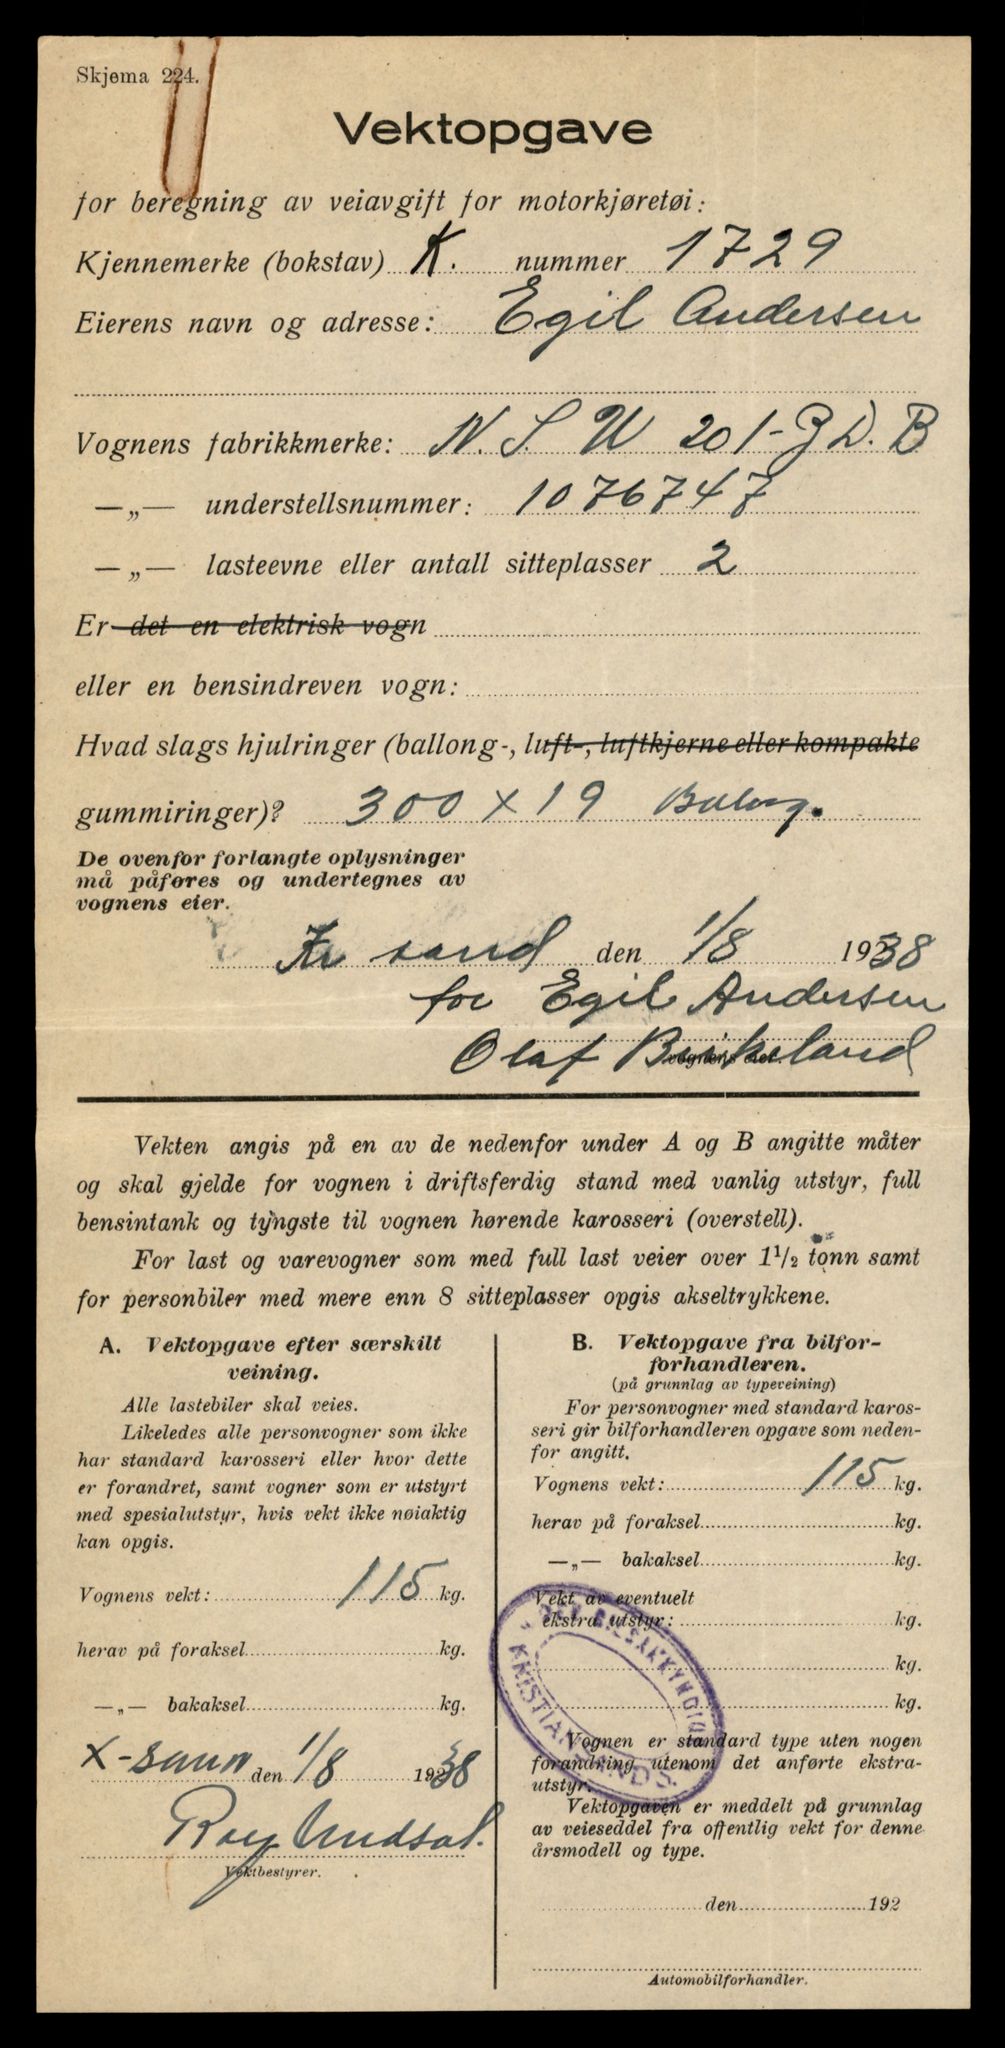 Skjema 224.
Vektopgave
for beregning av veiavgift for motorkjøretøi:
Kjennemerke (bokstav) K. nummer 1729
Eierens navn og adresse: Egil Andersen
Vognens fabrikkmerke: N. S. U 201-Z D. B
—„— understellsnummer: 1076747
—„— lasteevne eller antall sitteplasser 2
Er det en elektrisk vogn
eller en bensindreven vogn:
Hvad slags hjulringer (ballong-, luft-, luftkjerne eller kompakte
gummiringer)? 300 x 19 Balong.
De ovenfor forlangte oplysninger
må påføres og undertegnes av
vognens eier.
Kr sand den 1/8 1938
for Egil Andersen
Olaf Birkeland
vognens eier.
Vekten angis på en av de nedenfor under A og B angitte måter
og skal gjelde for vognen i driftsferdig stand med vanlig utstyr, full
bensintank og tyngste til vognen hørende karosseri (overstell).
For last og varevogner som med full last veier over 1 1/2 tonn samt
for personbiler med mere enn 8 sitteplasser opgis akseltrykkene.
A. Vektopgave efter særskilt
veining.
Alle lastebiler skal veies.
Likeledes alle personvogner som ikke
har standard karosseri eller hvor dette
er forandret, samt vogner som er utstyrt
med spesialutstyr, hvis vekt ikke nøiaktig
kan opgis.
Vognens vekt: 115 kg.
herav på foraksel kg.
—„— bakaksel kg.
X-sann den 1/8 1938
Vektbestyrer.
B. Vektopgave fra bilfor-
forhandleren.
(på grunnlag av typeveining)
For personvogner med standard karos-
seri gir bilforhandleren opgave som neden-
for angitt.
Vognens vekt: 115 kg.
herav på foraksel kg.
—„— bakaksel kg.
Vekt av eventuelt
ekstra utstyr: kg.
kg.
kg.
BILSAKKYNDIGE
KRISTIANSANDS
Vognen er standard type uten nogen
forandring utenom det anførte ekstra-
utstyr.
Vektopgaven er meddelt på grunnlag
av veieseddel fra offentlig vekt for denne
årsmodell og type.
den 192
Automobilforhandler.